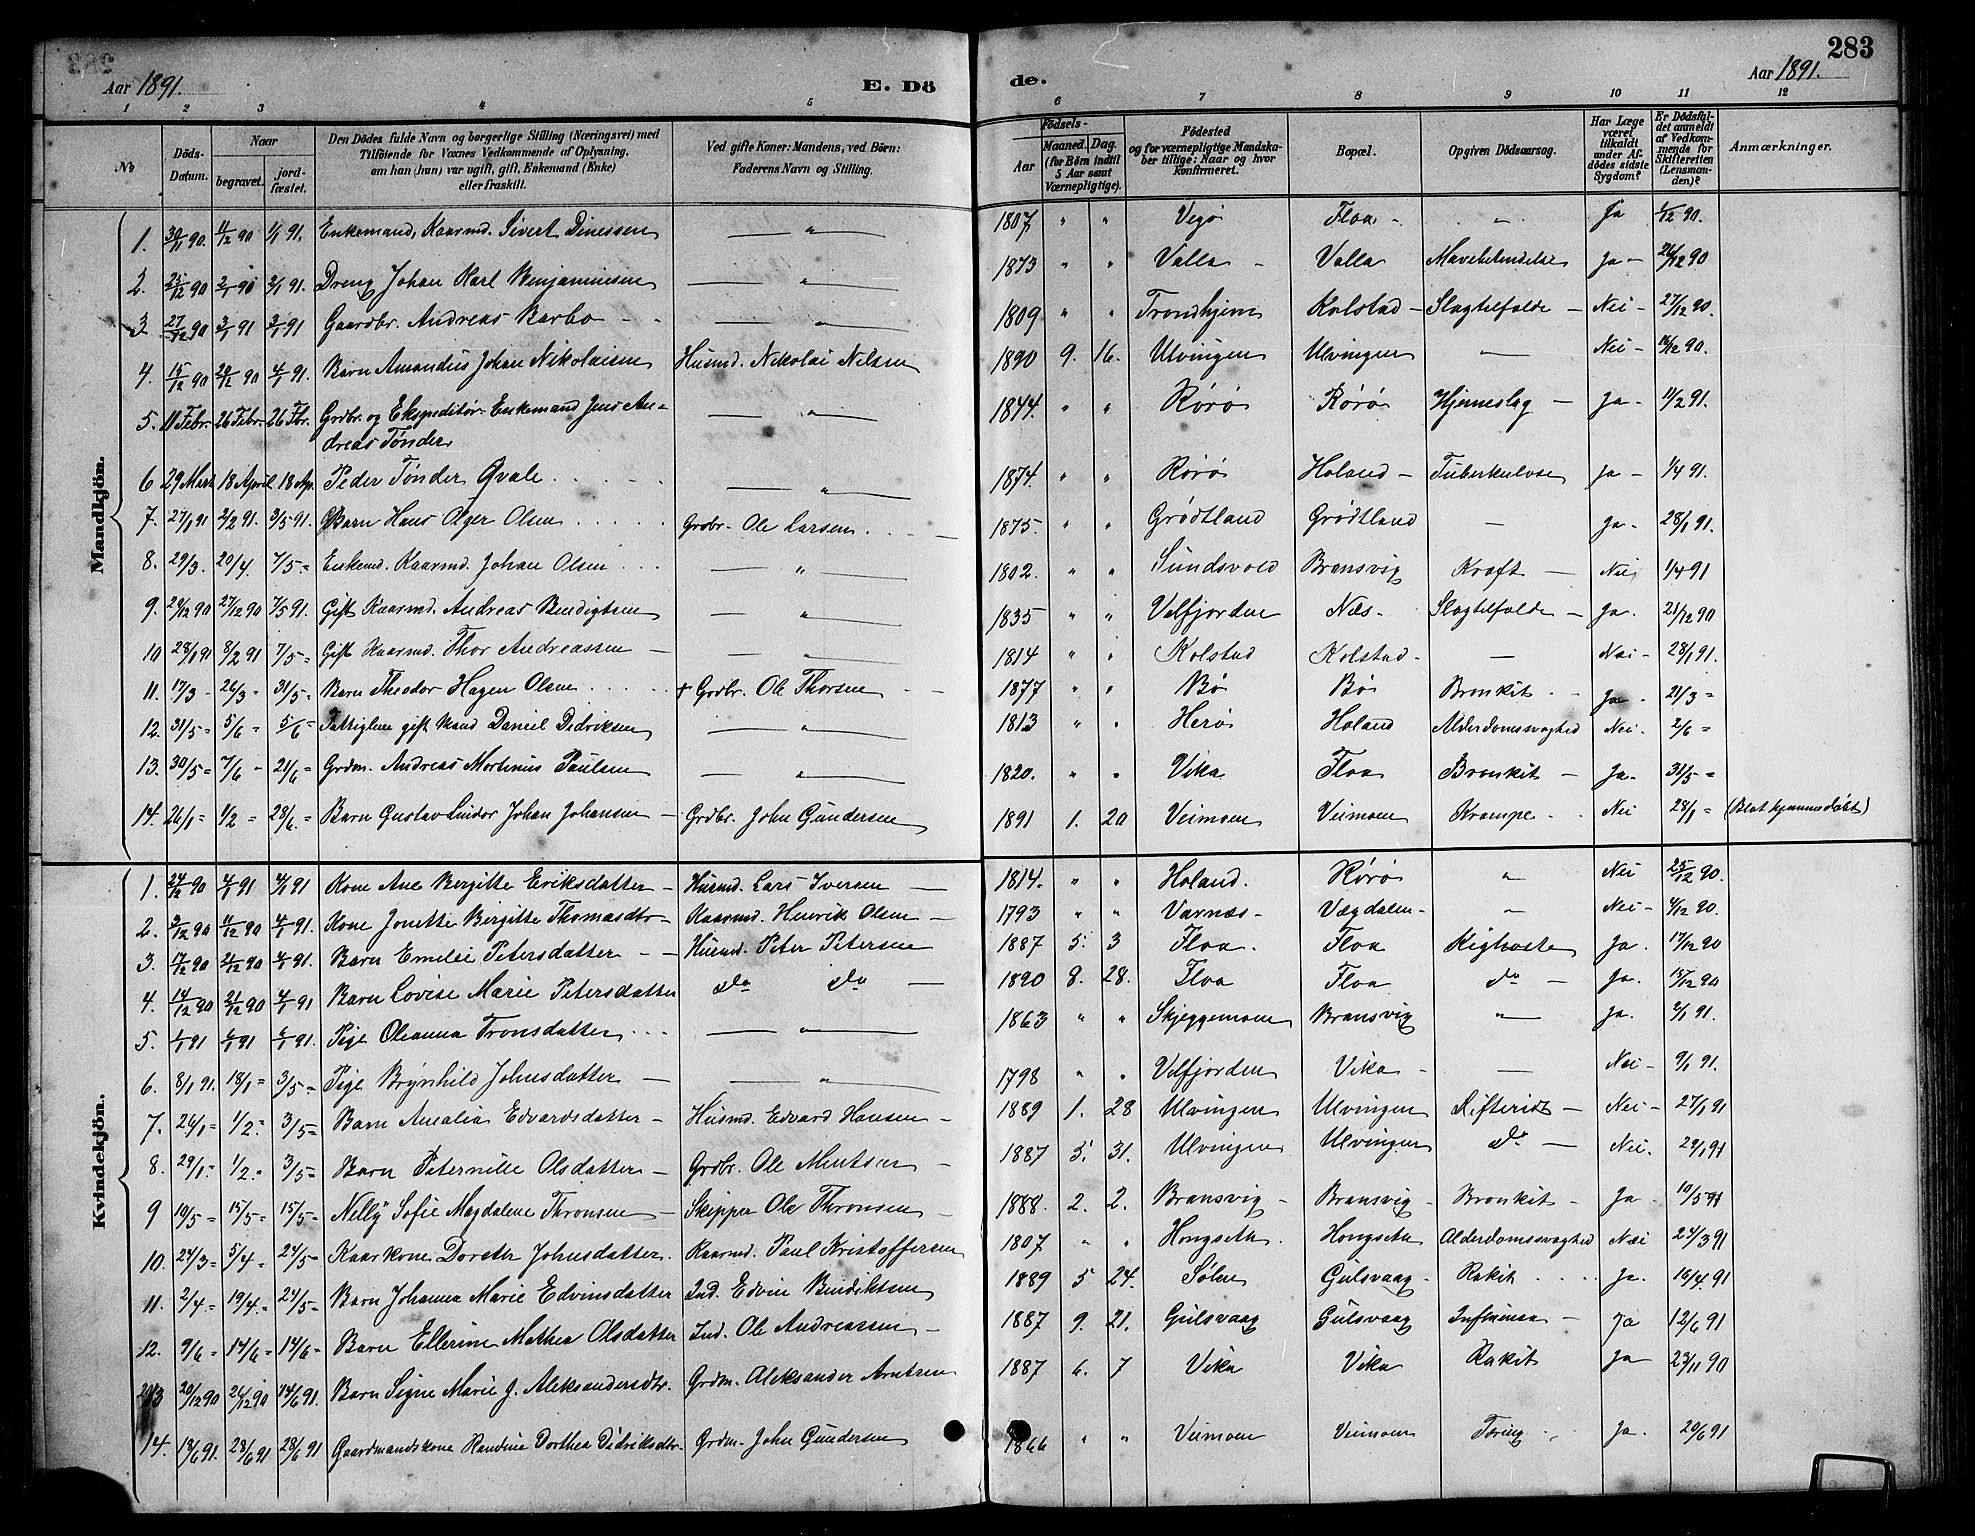 283
Aar 1891.
E. Döde.
Aar 1891.
1 2 3 4 5 6 7 8 9 10 11 12
№
Döds-Datum.
Naar
begravet.
jordfæstet.
Den Dödes fulde Navn og borgerlige Stilling (Næringsvei) med Tilföiende for Voxnes Vedkommende af Oplysning, om han (hun) var ugift, gift, Enkemand (Enke) eller fraskilt.
Ved gifte Koner: Mandens, ved Börn: Faderens Navn og Stilling.
Födsels-
Aar
Maaned. Dag.
(for Börn indtil 5 Aar samt Værnepligtige).
Födested og for værnepligtige Mandskaber tillige: Naar og hvor konfirmeret.
Bopæl.
Opgiven Dödsaarsag.
Har Læge været tilkaldt under Afdödes sidste Sygdom?
Er Dödsfaldet anmeldt af Vedkommende for Skifteretten (Lensmanden)?
Anmærkninger.
Mandkjön.
1. 30/11 90. 11/12 90 1/1 91. Enkemand, Kaarmd. Sivert Dinessen — " — 1807 " " Vegø Floa - " Ja 1/12 90.
2. 25/12 90 2/1 90 2/1 91. Dreng Johan Karl Benjaminsen — " — 1873 " " Valla - Valla Mavebetendelse Ja - 26/12 90
3. 27/12 90 3/1 91 3/1 91 Gaardbr. Andreas Barbo - - — " — 1809 " " Trondhjem Kolstad - Slagtilfælde - Nei - 27/12 90.
4. 15/12 90 20/12 90 4/1 91. Barn Amandus Johan Nikolaisen Husmd. Nikolai Nilsen 1890 9. 16. Ulvingen Ulvingen — Nei - 16/12 90.
5. 11 Febr. 26 Febr. 26 Fbr. Grdbr. og Ekspeditør. Enkemand Jens An- — " — 1844. " " Rørø Rørø Hjerneslag - Ja - 11/2 91.
dreas Tønder
6 29 Mart 18 April 18 Ap. Peder Tønder Qvale . . . . — " — 1874. " " Rørø Holand - Tuberkulose Ja - 1/4 91.
7. 27/1 91 2/2 91. 3/5 91. Barn Hans Olger Olsen . . . . . Grdbr. Ole Larsen. . . — 1875. " " Grødtland Grødtland — Ja - 28/1 91.
8. 29/3. 20/4. 7/5 = Enkemd. Kaarmd. Johan Olsen . . . — " — 1802. " " Sundsvold Bransvig Kræft — Nei 1/4 91
9. 20/12 90 27/12 90 7/5 91. Gift Kaarmd. Andreas Bendigtsen — " — 1835 " " Velfjorden Næs - Slagtilfælde - Ja. 21/12 90
10 28/1 91 8/2 91 7/5 = Gift Kaarmd. Thor Andreassen — — " — 1814 " " Kolstad Kolstad - — Nei - 28/1 91.
11. 17/3 - 26/3 = 31/5 = Barn Theodor Hagen Olsen . . . . + Grdbr. Ole Thorsen - - 1877 " " Bø Bø Bronkit - Ja - 21/3 =
12. 31/5 = 5/6 = 5/6 = Fattiglem gift Mand Daniel Didriksen — " — 1813 " " Herø Holand Alderdomssvaghed Nei - 2/6 =
13. 30/5 = 7/6 - 21/6 = Grdm. Andreas Martinus Paulsen — " — 1820. " " Vika Floa Bronkit - Ja. 31/5 =
14. 26/1 = 1/2 = 28/6. Barn Gustav Lindor Johan Johansen — Grdbr. John Gundersen 1891 1. 20 Veimoen Veimoen Krampe . . Nei 28/1 = (Blot hjemmedøbt)
Kvindekjön.
1. 24/12 90 4/1 91 4/1 91 Kone Ane Bergitte Eriksdatter - Husmd. Lars Iversen — 1814. " " Holand. Rørø " Nei 25/12 90.
2. 3/12 90 11/12 90 4/1 91. Kone Jonette Birgitte Thomasdtr - Kaarmd. Henrik Olsen — 1793 " " Varnæs - Vægdalen - " Nei - 4/12 90.
3. 17/12 90 21/12 90 4/1 91. Barn Emelie Petersdatter - - Husmd. Peter Petersen 1887 5. 3 Floa. Floa Kighoste Ja. 17/12 90
4. 14/12 90 21/12 90 4/1 91 Barn Lovise Marie Petersdatter do do — 1890 8. 28. Floa Floa do - Ja. 15/12 90
5. 1/1 91 6/1 91 6/1 91. Pige Oleanna Tronsdatter . . . — " — 1863 " " Skjeggemoen Bransvig " Ja. 2/1 91.
6. 8/1 91. 18/1 = 3/5 = Pige Brynhild Johnsdatter — — " — 1798 " " Velfjorden Vika - — Nei - 9/1 91.
7. 26/1 = 1/2 = 3/5 = Barn Amalia Edvardsdatter - Husmd. Edvard Hansen - 1889 1. 28 Ulvingen Ulvingen Difterids - Nei - 27/1 91
8. 29/1 = 1/2 = 3/5 = Barn Peternille Olsdatter - Grdbr. Ole Mentsen - 1887 5. 31. Ulvingen Ulvingen do - Nei. 29/1 91
9 10/5 = 15/5 = 15/5 = Nelly Sofie Magdalene Thronsen - Skipper Ole Thronsen - 1888. 2. 2. Bransvig - Bransvig - Bronkit - Ja - 10/5 91
10. 24/3 = 5/4 = 24/5 = Kaarkone Dorethe Johnsdatter. Kaarmd. Paul Kristoffersen 1807 " " Hongseth. Hongseth Alderdomssvaghed Nei 24/3 91
11. 2/4 = 19/4 = 24/5 = Barn Johanna Marie Edvinsdatter Ind. Edvin Bendiktsen 1889 5 24. Sølen Gulsvaag - Rakit . . . . Ja. 16/4 91
12. 9/6 = 14/6 = 14/6 = Barn Ellerine Mathea Olsdatter Ind. Ole Andreassen - 1887 9. 21. Gulsvaag Gulsvaag Influensa - Ja 12/6 91
13 20/12 90 26/12 90 14/6 91. Barn Signe Marie J. Aleksandersdtr. Grdm. Aleksander Arntsen 1887 6. 7 Vika Vika Rakit Ja 23/11 90
14. 18/6 91. 28/6 91 28/6 91 Gaardmandskone Randine Dorthea Didriksdtr. Grdm. John Gundersen 1866 " " Veimoen Veimoen Tæring . . Ja. 20/6 91